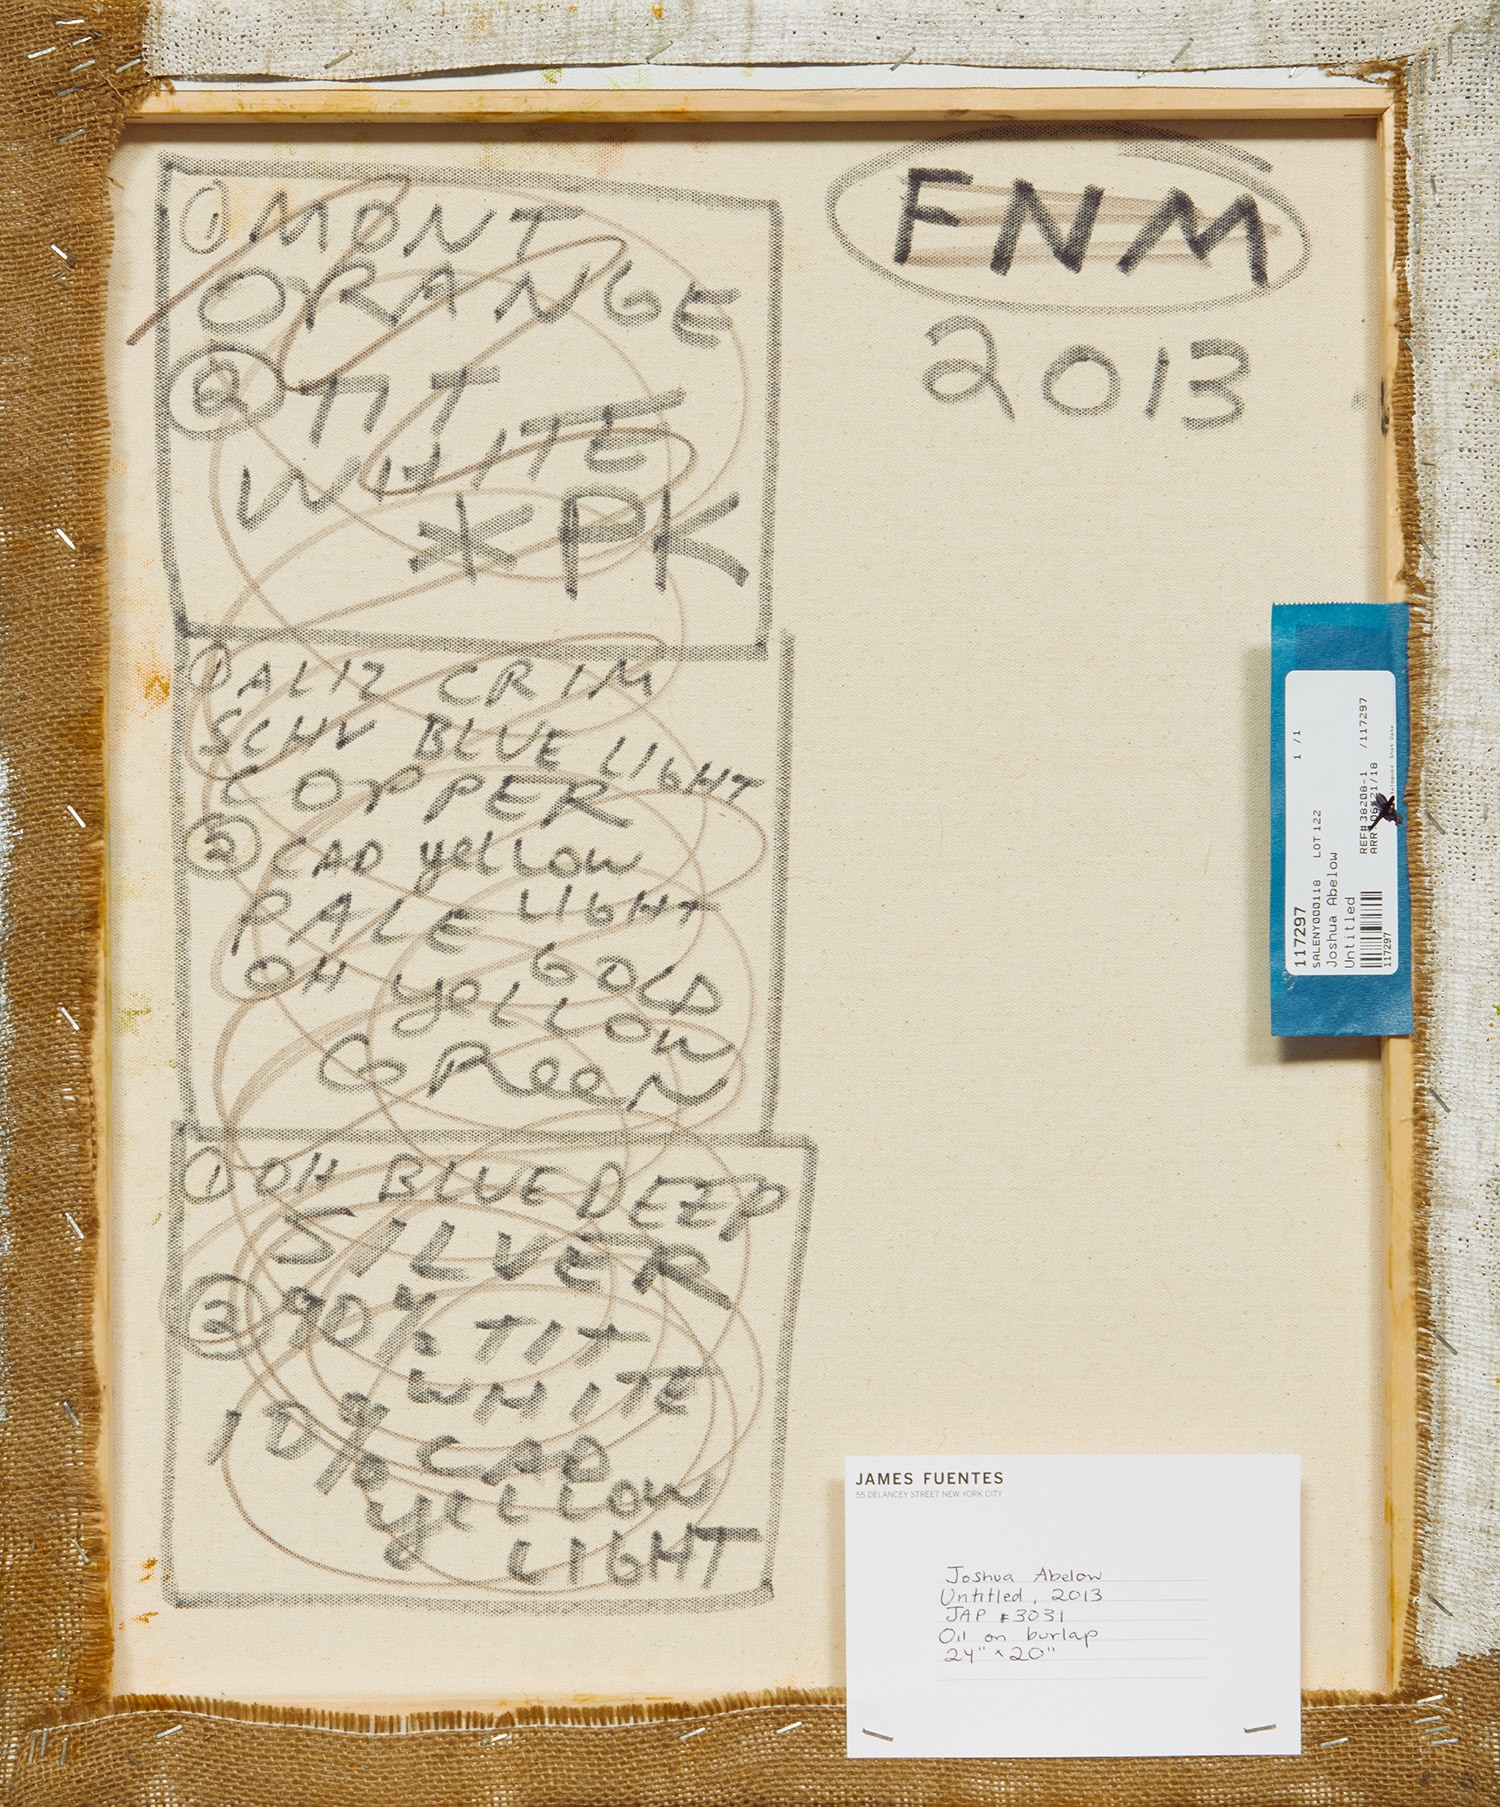 ① MONT
ORANGE
② TIT
WHITE
*PK
① ALIZ CRIM
SCHV BLUE LIGHT
COPPER
② CAD yellow
PALE LIGHT
GOLD
OH yellow
GReeN
① OH BLUE DEEP
SILVER
② 90% TIT
WHITE
10% CAD
yellow
LIGHT
FNM
2013
117297
SALENY000118 LOT 122 1 /1
Joshua Abelow
Untitled
REF# 38208-1 /117297
ARR 21/18
117297
JAMES FUENTES
55 DELANCEY STREET NEW YORK CITY
Joshua Abelow
Untitled, 2013
JAP #3031
Oil on burlap
24" x 20"